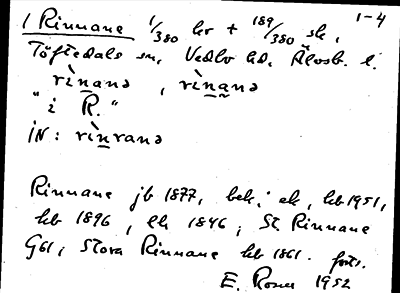 1-4
1 Rinnane 1/380 kr + 189/380 sk,
Töftedals sn, Vedbo hd, Älvsb. l.
rìnanə, rìnanə
"i R."
iN: rìnranə
Rinnane jb 1877, bek; ek, kb 1951,
kb 1896, ek 1846; St Rinnane
G61; Stora Rinnane kb 1861. forts.
E. Rosen 1952